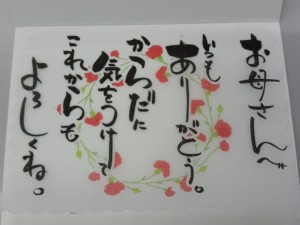 お母さんへ
いつも
ありがとう。
からだに
気をつけて
これからも
よろしくね。